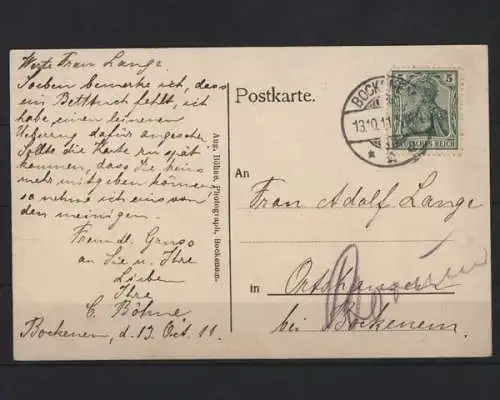 Werte Frau Lange.
Soeben bemerke ich, dass
ein Betttuch fehlt, ich
habe einen leinenen
Ueberzug dafür angesehen.
Sollte die Karte zu spät
kommen, dass Sie keins
mehr mitgeben können,
so nehme ich eins von
den meinigen.
Freundl. Gruss
an Sie u. Ihre
Lieben
Ihre
C. Böhne
Bockenem, d. 13. Oct. 11.
Aug. Böhne, Photograph, Bockenem.
Postkarte.
BOCKENEM
13.10.11
5
DEUTSCHES REICH
An
Frau Adolf Lange
in
bei Bockenem.